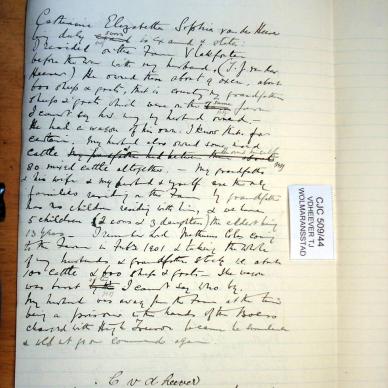 Catharina Elizabetha Sophia van der Heever
being duly sworn to Exam. & states:
I resided on the Farm Vlakfontein
before the war with my husband (T. J. van der
Heever). He owned then about 9 oxen, about
600 sheep & goats, that is counting my grandfather's
sheep & goats which were on the same farm
I can't say how many my husband owned –
He had a wagon of his own. I know that for
certain. My husband also owned some
cattle
80 mixed cattle altogether. – My grandfather
& his wife & my husband & myself are the only
families residing on the Farm. My grandfather
has no children residing with him, & we have
5 children (2 sons & 3 daughters), the eldest being
13 years. I remember Lord Methuen's Column coming
to the Farm in Feb'y 1901 & taking the whole
of my husband's & grandfather's stock i.e. about
100 cattle & 600 sheep & goats – The wagon
was burnt I can't say who by.
My husband was away from the Farm at the time
being a prisoner in the hands of the Boers
charged with High Treason because he surrendered
& would not go on commando again.
C v d heever
CJC 509/44
VDHEEVER TJ
WOLMARANSSTAD